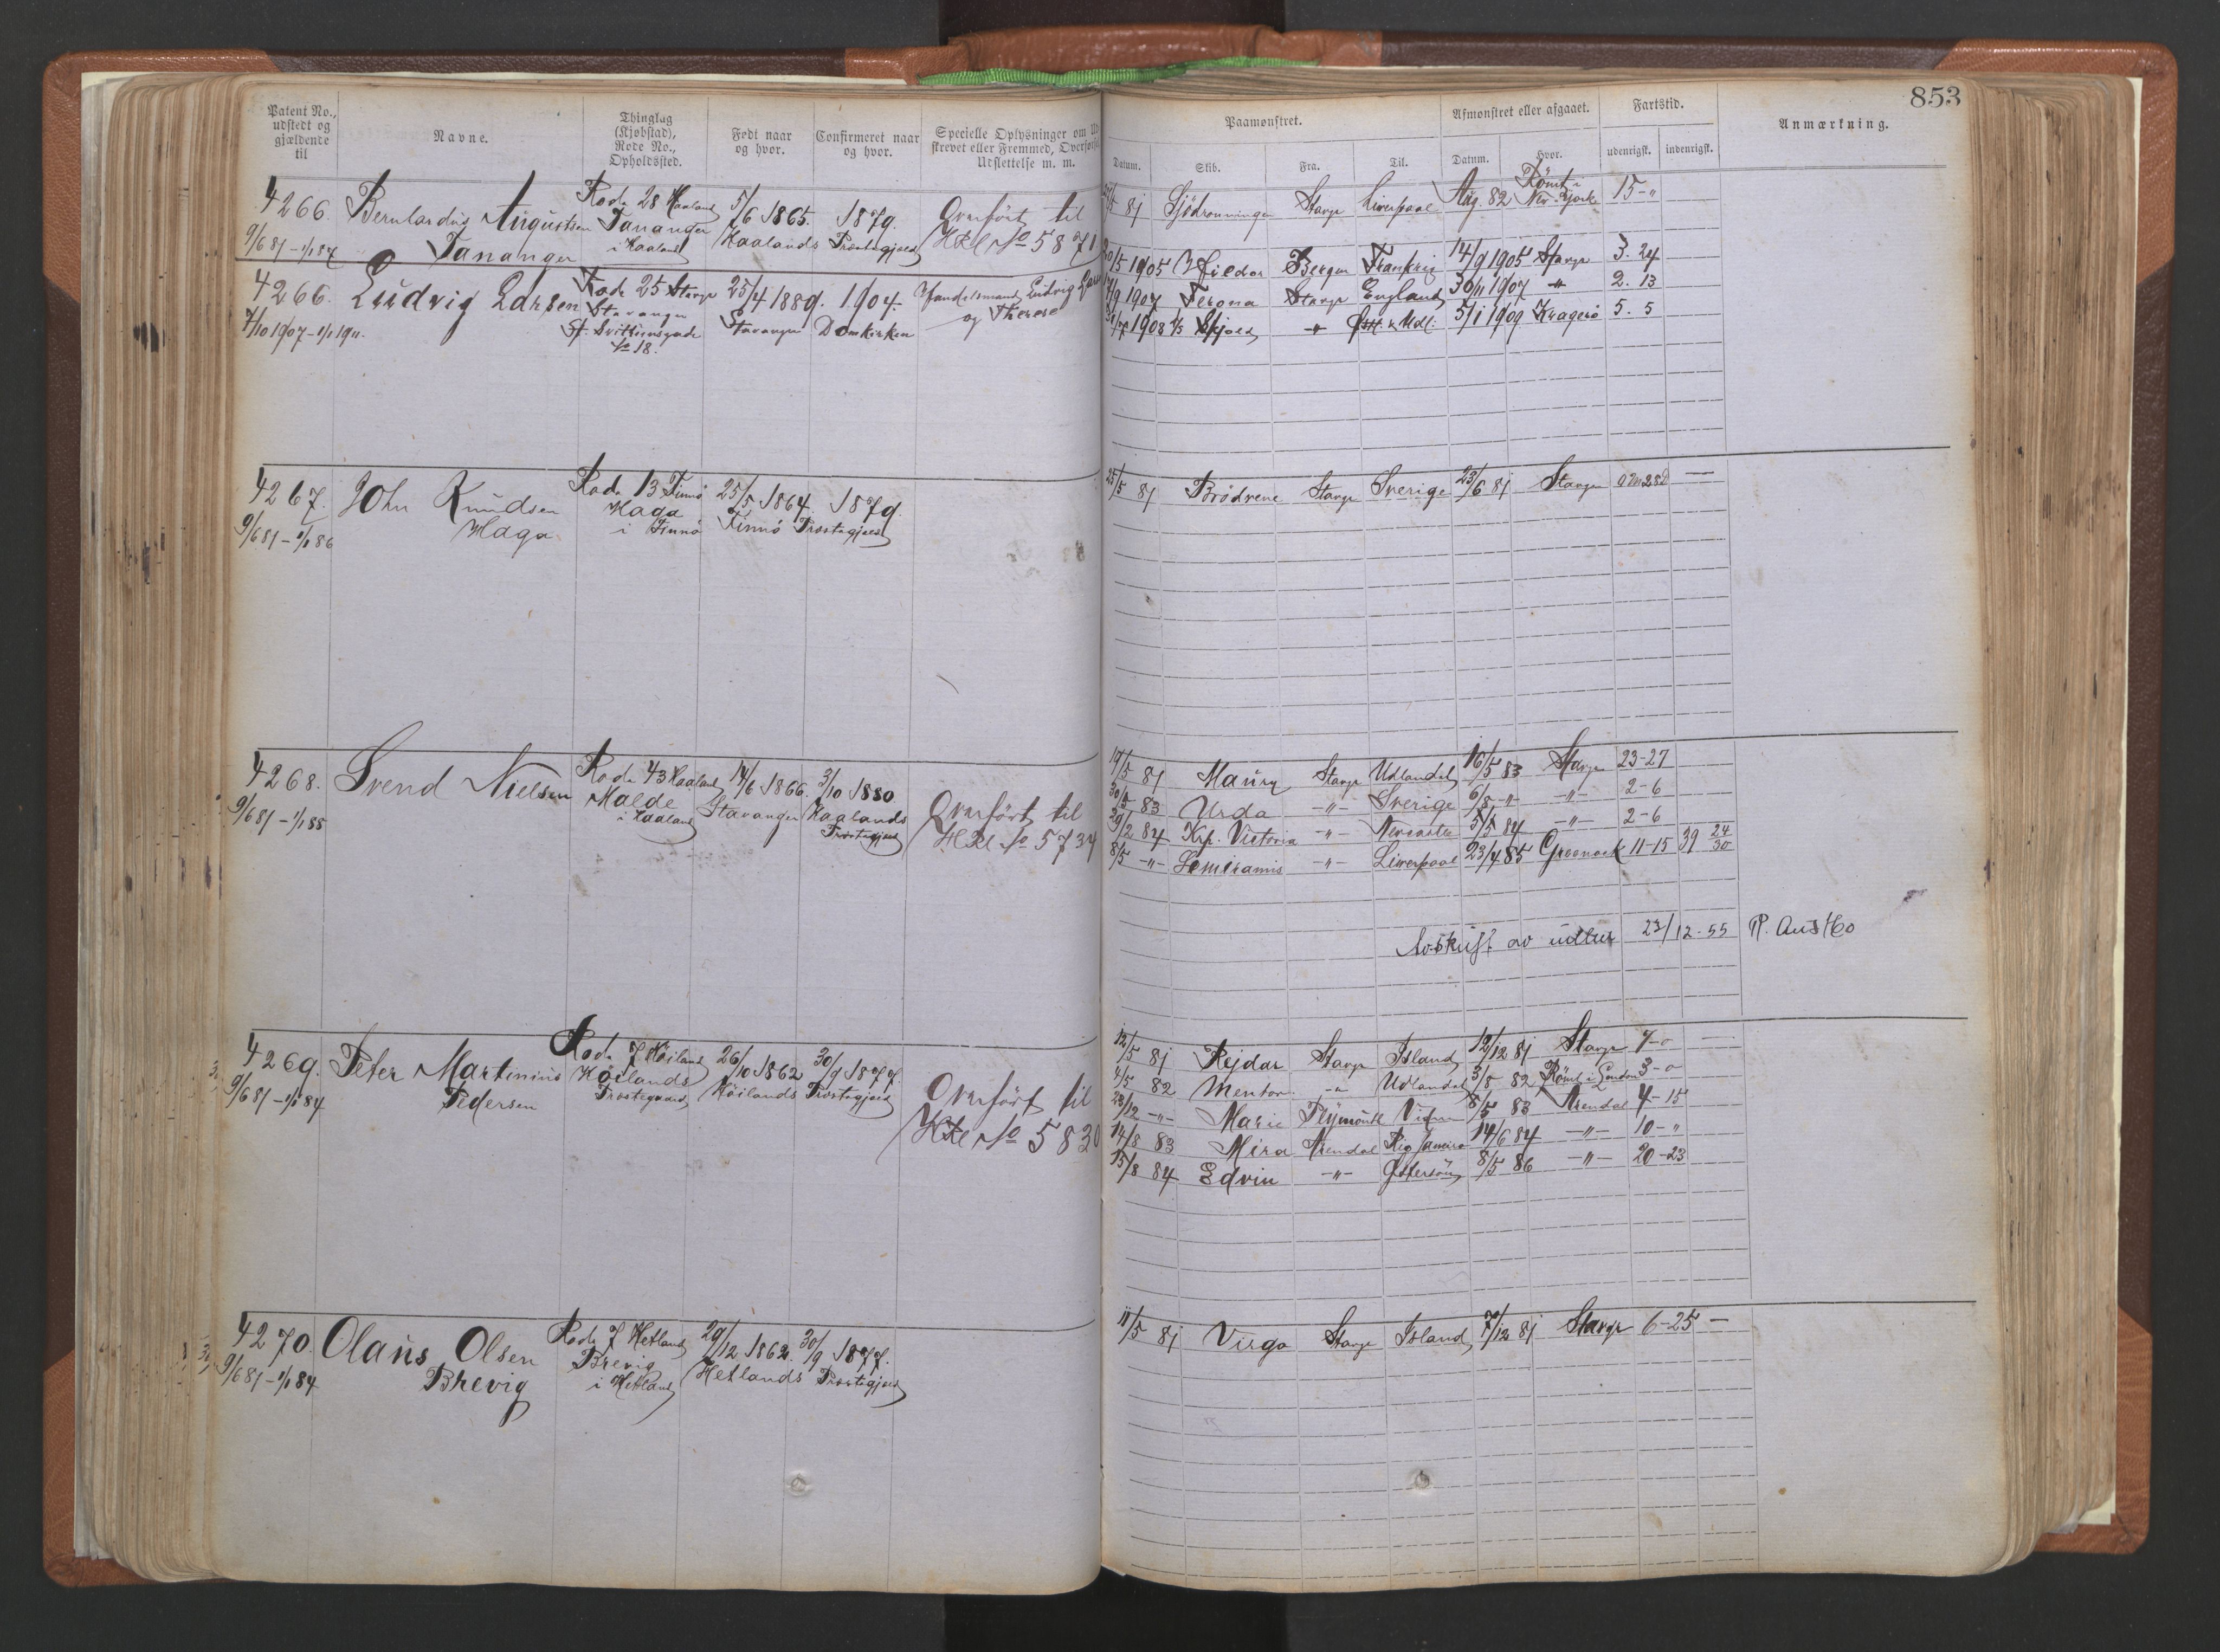 853
Patent No., udstedt og gjældende til
Navne.
Thinglag (Kjøbstad), Rode No., Opholdssted.
Født naar og hvor.
Confirmeret naar og hvor.
Specielle Oplysninger om Ud
skrevet eller Fremmed, Overført
Udslettelse m. m.
Paamønstret.
Afmønstret eller afgaaet.
Fartstid.
Anmærkning.
Datum. Skib. Fra. Til. Datum. Hvor. udenrigsk. indenrigsk.
4266. Bernhardus Augustsen Rode 28 Haaland 5/6 1865. 1879. Overført til
9/6 81 - 1/1 87 Tananger Tananger i Haaland Haalands Præstegjæld HRl No 5871
81 Sjødronningen Stavgr Liverpool Aug. 82 Rømt i New-York 15-"
4266. Ludvig Larsen Rode 25 Stavgr 25/4 1889. 1904. Handelsmand Ludvig
7/10 1907 - 1/1 1911. Stavanger Stavanger Domkirken og Therese
St. Svithunsgade
No 18.
/5 1905 Hildor Bergen Frankrig 14/9 1905 Stavgr 3. 24
/9 1907 Verona Stavgr England 30/11 1907 " 2. 13
1908 Skjold " 5/1 1909 Kragerø 5. 5
4267. John Knudsen Rode 13 Finnø 25/5 1864. 1879.
9/6 81 - 1/1 86 Haga Haga i Finnø Finnø Præstegjæld
25/5 81 Brødrene Stavgr Sverige 23/6 81 Stavgr 0 M 28 D —
4268. Svend Nielsen Rode 43 Haaland 14/6 1866. 3/10 1880
9/6 81 - 1/1 88 Malde i Haaland Stavanger Haalands Præstegjæld
Overført til
HRl No 5734
19/5 81 Maury Stavgr Udlandet 16/5 83 Stavgr 23-27
30/5 83 Urda -"- Sverige 6/8 -"- -"- 2-6
29/2 84 Kp. Victoria -"- Newcastle 5/5 84 -"- 2-6
8/5 -"- Semiramis -"- Liverpool 23/4 85 Greenock 11-15 39 24/30
Avskrift av udtur 23/12-55
4269. Peter Martinius Rode 7 Høiland 26/10 1862 30/9 1877.
9/6 81 - 1/1 84 Pedersen Høilands Præstegaard Høilands Præstegjæld
Overført til
HRl No 5830
12/5 81 Rejdar Stavgr Island 12/12 81 Stavgr 7-0 —
4/5 82 Mentor -"- Udlandet 3/8 82 Rømt i London 3-0
23/12 -"- Marie Plymouth 8/5 83 Arendal 4-15
14/8 83 Mira Arendal Rio Janeiro 14/6 84 -"- 10-"
15/8 84 Edvin -"- Østersøen 8/5 86 -"- 20-23
4270. Olaus Olsen Rode 7 Hetland 29/12 1862. 30/9 1877.
9/6 81 - 1/1 84 Brevig Brevig i Hetland Hetlands Præstegjæld
11/5 81 Virgo Stavgr Island 7/12 81 Stavgr 6-25 —